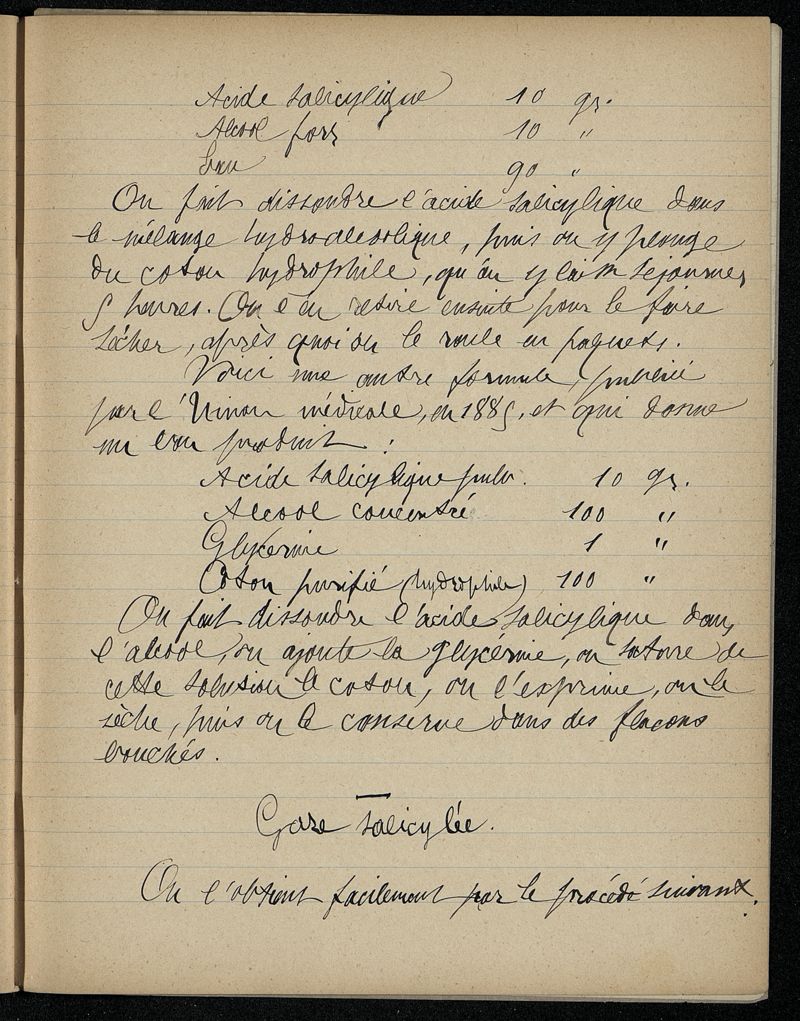 Acide salicylique 10 gr.
Alcool fort 10 "
Eau 90 "
On fait dissoudre l'acide salicylique dans
le mélange hydroalcoolique, puis on y plonge
du coton hydrophile, qu'on y laisse séjourner
5 heures. On l'en retire ensuite pour le faire
sécher, après quoi on le roule en paquets.
Voici une autre formule, publiée
par l'Union médicale, en 1885, et qui donne
un bon produit :
Acide salicylique pulv. 10 gr.
Alcool concentré 100 "
Glycérine 1 "
Coton purifié (hydrophile) 100 "
On fait dissoudre l'acide salicylique dans
l'alcool, on ajoute la glycérine, on sature de
cette solution le coton, on l'exprime, on le
sèche, puis on le conserve dans des flacons
bouchés.
Gaze salicylée.
On l'obtient facilement par le procédé suivant.